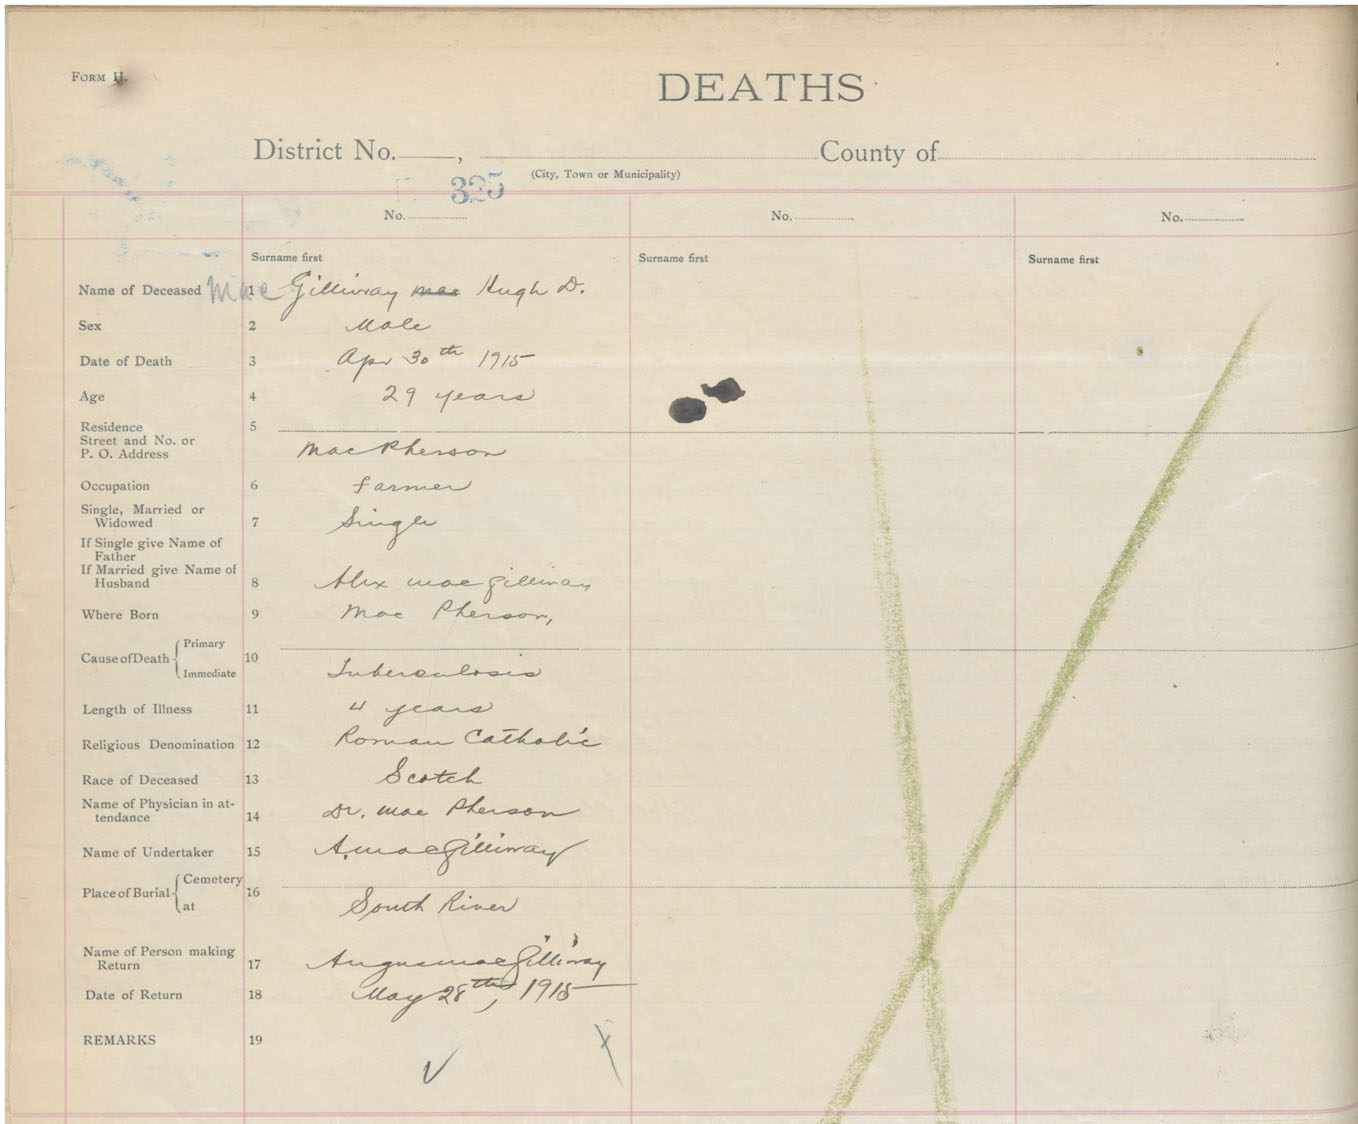 FORM II.
DEATHS
District No. , County of
(City, Town or Municipality)
325
No. No. No.
Surname first Surname first Surname first
Name of Deceased Mac 1 Gillivray mac Hugh D.
Sex 2 Male
Date of Death 3 Apr 30th 1915
Age 4 29 years
Residence 5
Street and No. or
P. O. Address MacPherson
Occupation 6 Farmer
Single, Married or
Widowed 7 Single
If Single give Name of
Father
If Married give Name of
Husband 8 Alex MacGillivray
Where Born 9 Mac Pherson,
Cause of Death Primary
10
Immediate Tuberculosis
Length of Illness 11 4 years
Religious Denomination 12 Roman Catholic
Race of Deceased 13 Scotch
Name of Physician in at-
tendance 14 Dr. Mac Pherson
Name of Undertaker 15 A. MacGillivray
Place of Burial Cemetery
16
at South River
Name of Person making
Return 17 Angus MacGillivray
Date of Return 18 May 28th, 1915
REMARKS 19